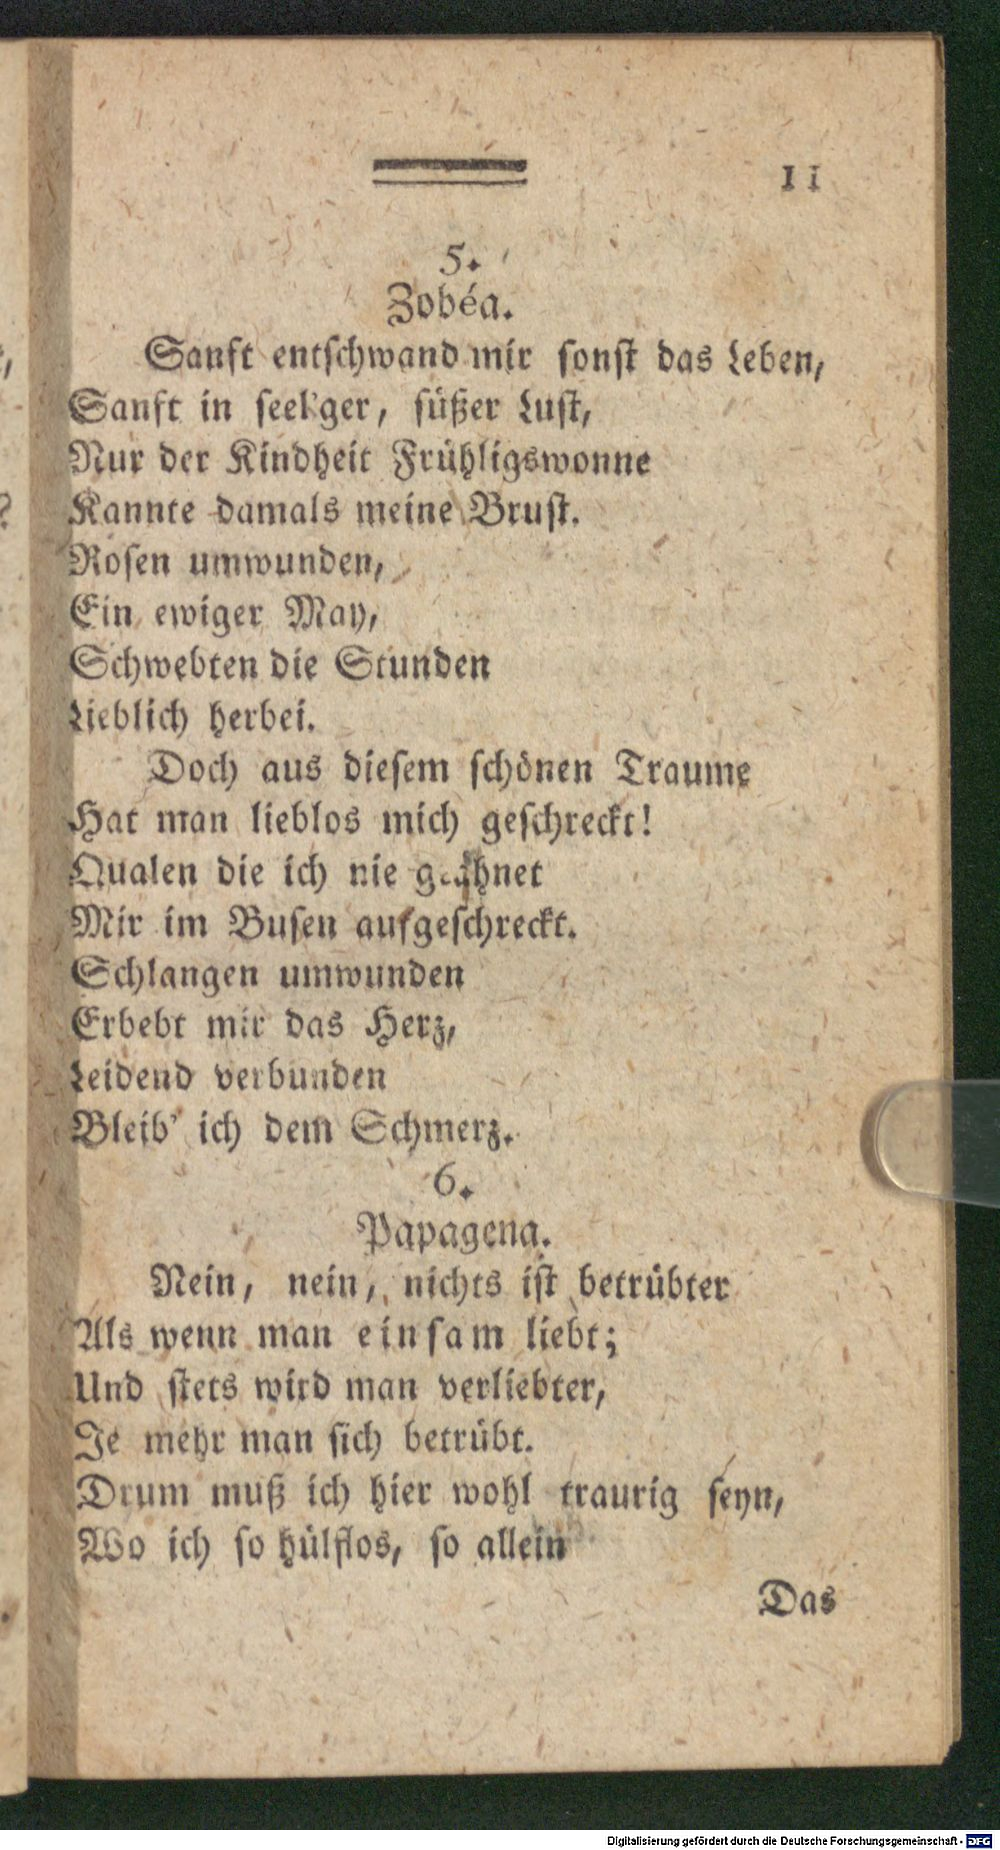 11
5.
Zobéa.
Sanft entschwand mir sonst das Leben,
Sanft in seel'ger, süßer Lust,
Nur der Kindheit Frühligswonne
Kannte damals meine Brust.
Rosen umwunden,
Ein ewiger May,
Schwebten die Stunden
Lieblich herbei.
Doch aus diesem schönen Traume
Hat man lieblos mich geschreckt!
Qualen die ich nie geahnet
Mir im Busen aufgeschreckt.
Schlangen umwunden
Erbebt mir das Herz,
Leidend verbunden
Bleib' ich dem Schmerz.
6.
Papagena.
Nein, nein, nichts ist betrübter
Als wenn man einsam liebt;
Und stets wird man verliebter,
Je mehr man sich betrübt.
Drum muß ich hier wohl traurig seyn,
Wo ich so hülflos, so allein
Das
Digitalisierung gefördert durch die Deutsche Forschungsgemeinschaft - DFG